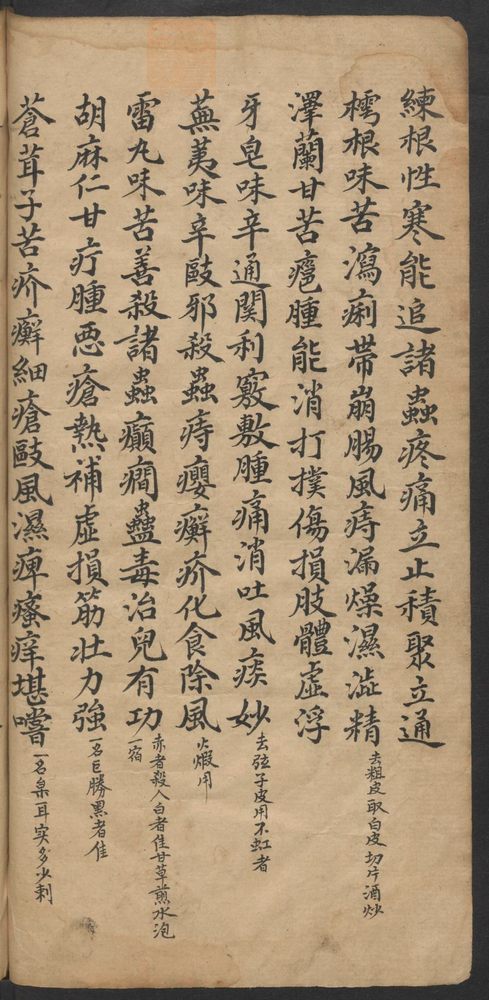 練根性寒能追諸蟲疼痛立止積聚立通
樗根味苦瀉痢帶崩腸風痔漏燥濕澁精去粗皮取白皮切片酒炒
澤蘭甘苦癰腫能消打撲傷損肢體虛浮
牙皂味辛通関利竅敷腫痛消吐風痰妙去弦子皮用不蛀者
蕪荑味辛敺邪殺蟲痔癭癬疥化食除風火煅用
雷丸味苦善殺諸蟲癲癎蠱毒治兒有功赤者殺人白者佳甘草煎水泡一宿
胡麻仁甘疔腫悪瘡熱補虛損筋壯力強一名巨勝黑者佳
蒼茸子苦疥癬細瘡敺風濕痺瘙痒堪嚐一名枲耳实多少刺